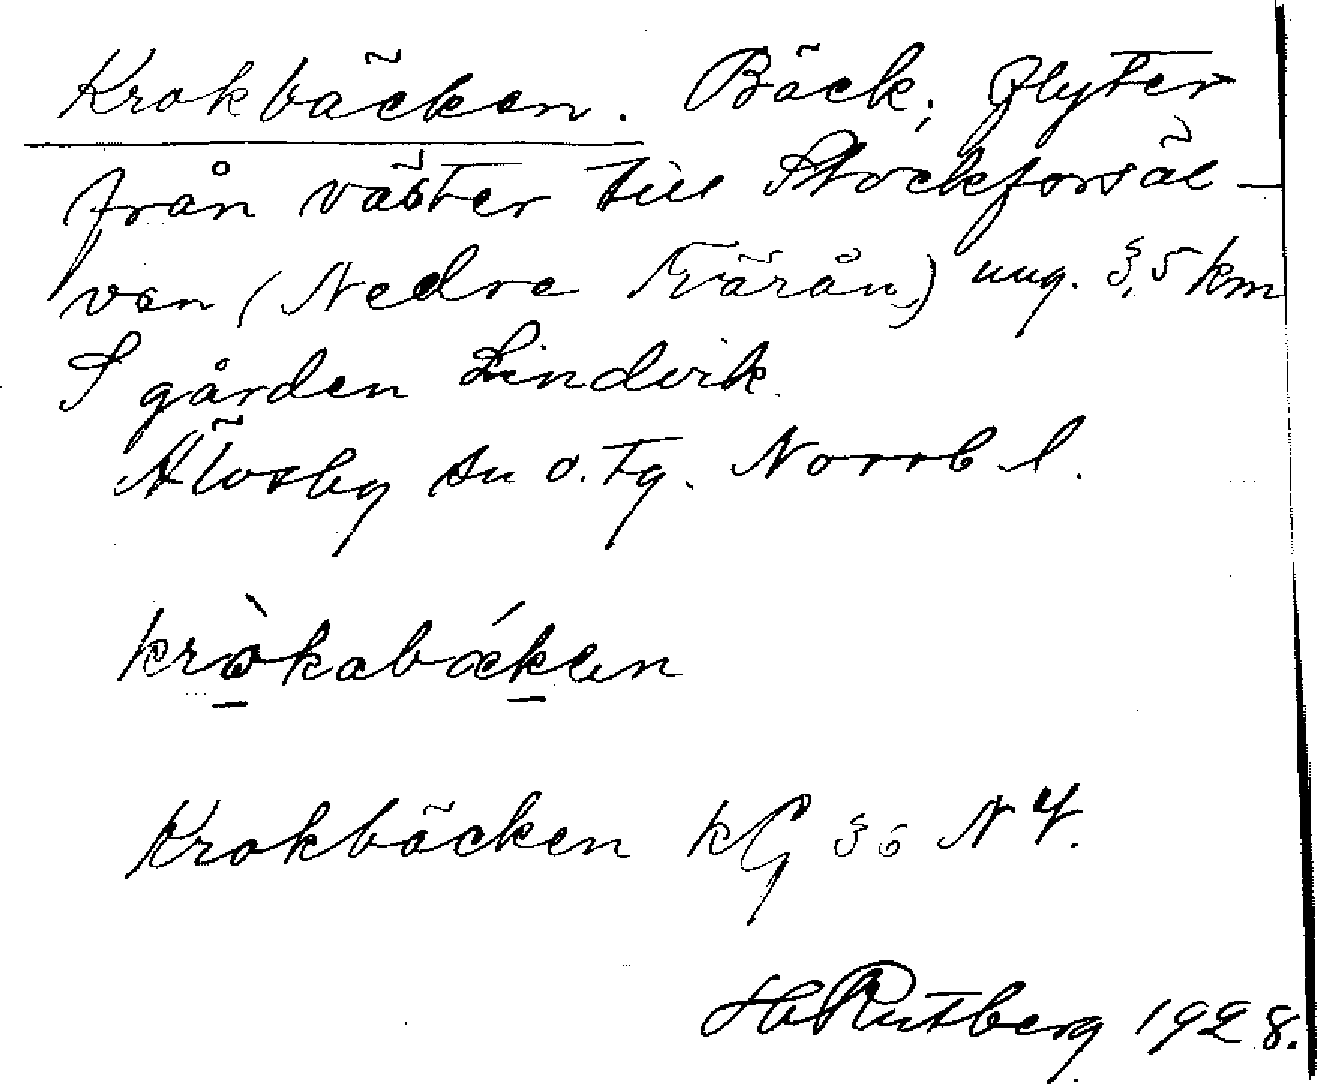 Krokbäcken. Bäck, flyter
från väster till Stockforsäl-
ven (Nedre Tvärån) ung. 3,5 km
S gården Lindvik.
Älvsby sn o. tg. Norrb l.
kròkabǽken
Krokbäcken kG 36 N 4.
H Rutberg 1928.